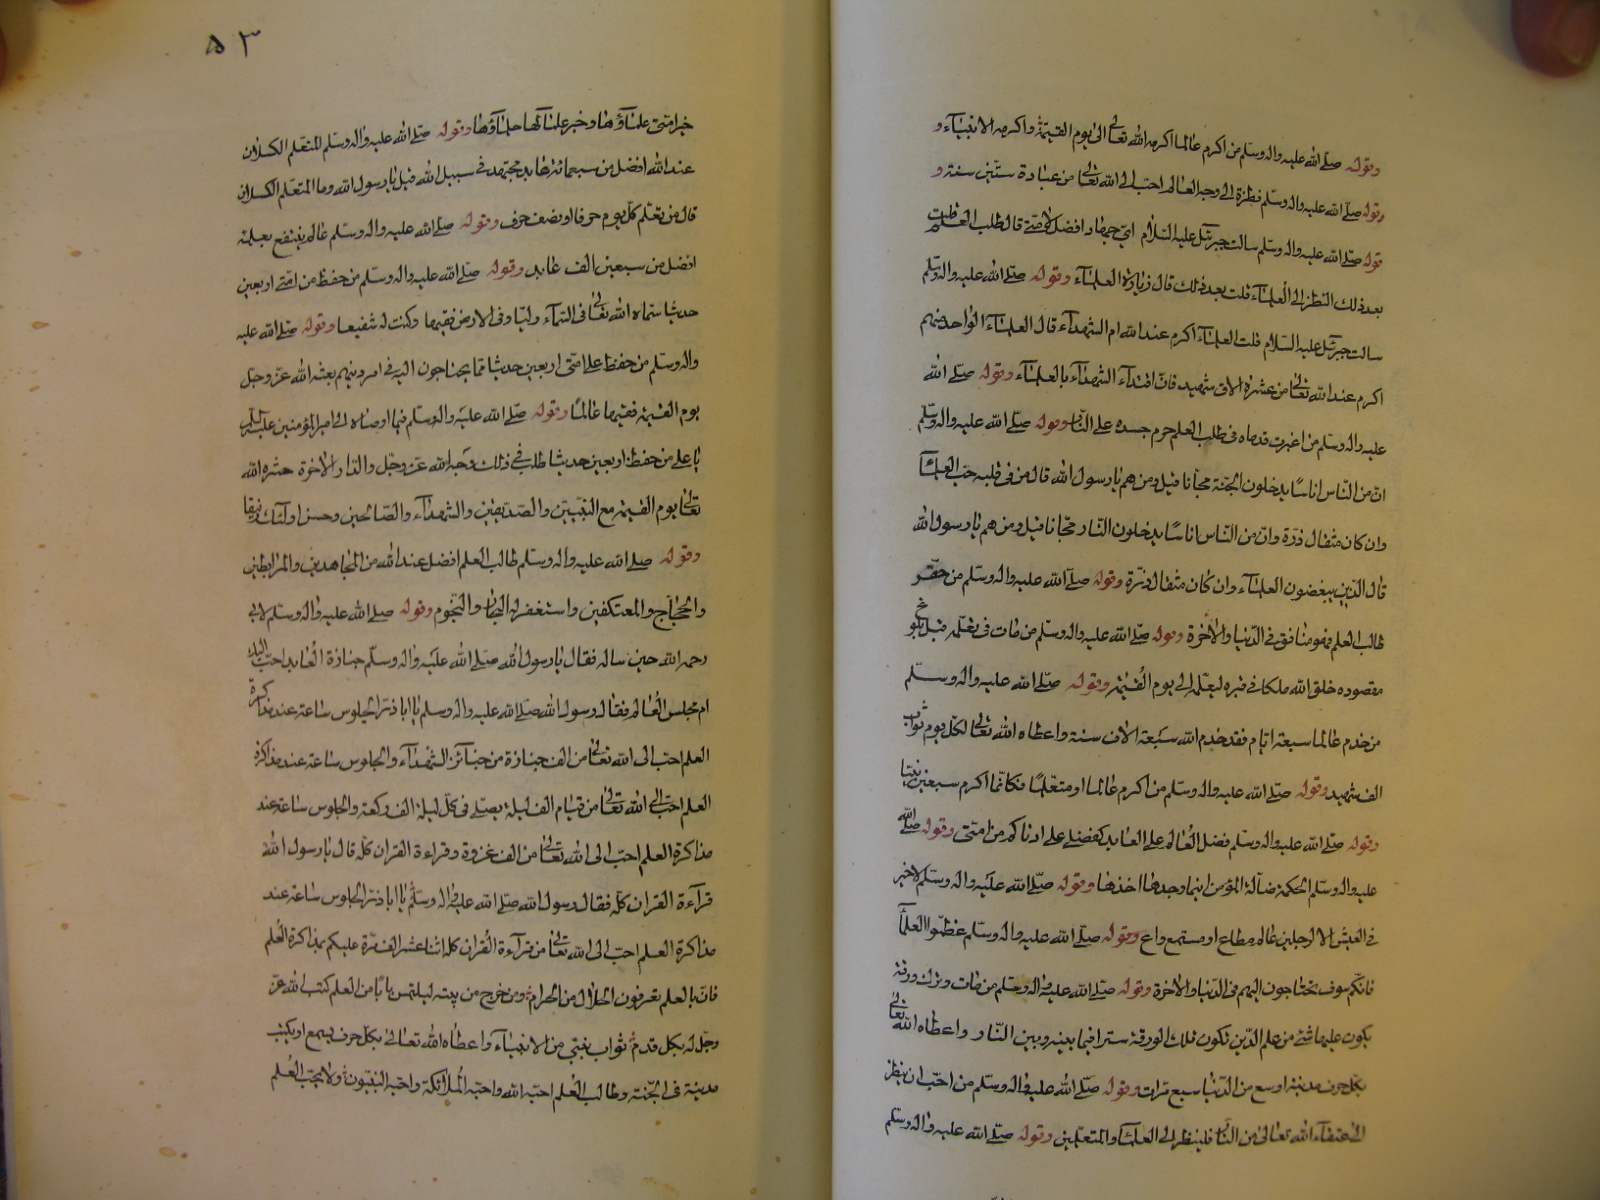 وقوله صلى الله عليه واله وسلم من اكرم عالما اكرمه الله تعالى يوم القيمة واكرمه الانبياء و
وقوله صلى الله عليه واله وسلم نظرة الى وجه العالم احب الى الله تعالى من عبادة ستين سنة و
قوله صلى الله عليه واله وسلم سالت جبرئيل عليه السلام اي جهاد افضل لامتي قال طلب العلم قلت
بعد ذلك النظر الى العلماء قلت بعد ذلك قال زيارة العلماء وقوله صلى الله عليه واله وسلم
سالت جبرئيل عليه السلام قلت العلماء اكرم عند الله ام الشهداء قال العلماء الواحد منهم
اكرم عند الله تعالى من عشرة الاف شهيد فان اقتداء الشهداء بالعلماء وقوله صلى الله
عليه واله وسلم من اغبرت قدماه في طلب العلم حرم جسده على النار وقوله صلى الله عليه واله وسلم
ان من الناس اناسا يدخلون الجنة مجانا قيل ومن هم يا رسول الله قال من في قلبه حب العلماء
وان كان مثقال ذرة وان من الناس اناسا يدخلون النار مجانا قيل ومن هم يا رسول الله
قال الذين يبغضون العلماء وان كان مثقال ذرة وقوله صلى الله عليه واله وسلم من حقر
طالب العلم فهو منافق في الدنيا والاخرة وقوله صلى الله عليه واله وسلم من مات في تعلمه قبل بلوغ
مقصوده خلق الله ملكا في قبره ليعلمه الى يوم القيمة وقوله صلى الله عليه واله وسلم
من خدم عالما سبعة ايام فقد خدم الله سبعة الاف سنة واعطاه الله تعالى لكل يوم ثواب
الف شهيد وقوله صلى الله عليه واله وسلم من اكرم عالما او متعلما فكانما اكرم سبعين نبيا
وقوله صلى الله عليه واله وسلم فضل العالم على العابد كفضلي على ادناكم من امتي وقوله صلى الله
عليه واله وسلم الحكمة ضالة المؤمن اينما وجدها اخذها وقوله صلى الله عليه واله وسلم لا خير
في العيش الا لرجلين عالم مطاع او مستمع واع وقوله صلى الله عليه واله وسلم عظموا العلماء
فانكم سوف تحتاجون اليهم في الدنيا والاخرة وقوله صلى الله عليه واله وسلم من مات وترك ورقة
يكون عليها شئ من علم الدين تكون تلك الورقة سترا فيما بينه وبين النار واعطاه الله تعالى
بكل حرف مدينة اوسع من الدنيا سبع مرات وقوله صلى الله عليه واله وسلم من احب ان ينظر
الى عتقاء الله تعالى من النار فلينظر الى العلماء والمتعلمين وقوله صلى الله عليه واله وسلم
٥٣
خير امتي علماؤها وخير علمائها حلماؤها وقوله صلى الله عليه واله وسلم المتعلم الكسلان
عند الله افضل من سبعمائة عابد مجتهد في سبيل الله قيل يا رسول الله وما المتعلم الكسلان
قال من تعلم كل يوم حرفا او نصف حرف وقوله صلى الله عليه واله وسلم عالم ينتفع بعلمه
افضل من سبعين الف عابد وقوله صلى الله عليه واله وسلم من حفظ من امتي اربعين
حديثا سماه الله تعالى في السماء وليا وفي الارض فقيها وكنت له شفيعا وقوله صلى الله عليه
واله وسلم من حفظ على امتي اربعين حديثا مما يحتاجون اليه في امر دينهم بعثه الله عز وجل
يوم القيمة فقيها عالما وقوله صلى الله عليه واله وسلم فيما اوصاه الى امير المؤمنين عليه السلم
يا علي من حفظ اربعين حديثا طلب في ذلك وجه الله عز وجل والدار الاخرة حشره الله
تعالى يوم القيمة مع النبيين والصديقين والشهداء والصالحين وحسن اولئك رفيقا
وقوله صلى الله عليه واله وسلم طالب العلم افضل عند الله من المجاهدين والمرابطين
والحجاج والمعتكفين واستغفر له البحار والنجوم وقوله صلى الله عليه واله وسلم لابي
رحمه الله حين ساله فقال يا رسول الله صلى الله عليه واله وسلم جنازة العابد احب اليك
ام مجلس العالم فقال رسول الله صلى الله عليه واله وسلم يا ابا ذر الجلوس ساعة عند مذاكرة
العلم احب الى الله تعالى من الف جنازة من جنائز الشهداء والجلوس ساعة عند مذاكرة
العلم احب الى الله تعالى من قيام الف ليلة يصلى في كل ليلة الف ركعة والجلوس ساعة عند
مذاكرة العلم احب الى الله تعالى من الف غزوة وقراءة القران كله قال يا رسول الله
قراءة القران كله فقال رسول الله صلى الله عليه واله وسلم يا ابا ذر الجلوس ساعة عند
مذاكرة العلم احب الى الله تعالى من قراءة القران كله اثنا عشر الف مرة عليكم بمذاكرة العلم
فان بالعلم تعرفون الحلال من الحرام ومن خرج من بيته ليلتمس بابا من العلم كتب الله عز
وجل له بكل قدم ثواب نبي من الانبياء واعطاه الله تعالى بكل حرف يسمع او يكتب
مدينة في الجنة وطالب العلم احبه الله واحبه الملائكة واحبه النبيون ولا يحب العلم